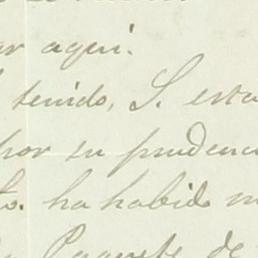 ar aqui.
tenido, S. esta
por su prudenc
to. ha habido m
Paquete de